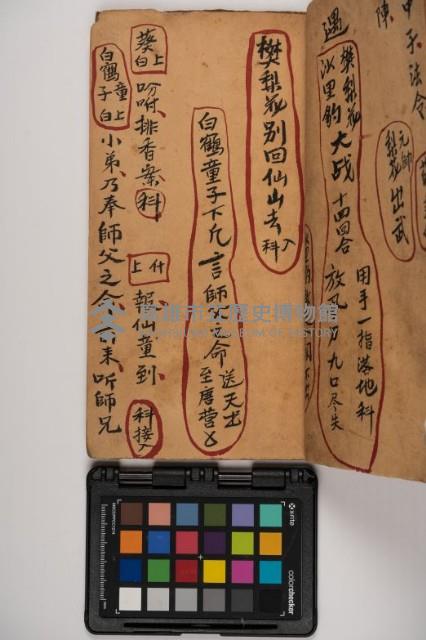 甲子法令
陳
元帥
梨花 出武
用手一指落地科
遇 樊梨花
沙里豹 大战 十四回合 放飛刀九口尽失
樊梨花别回仙山去 科入
白鶴童子下凡言師父之命 送天出
至唐营
葵上白 吩咐排香案 科 上 什 報仙童到 科接入
白鶴童子上白 小弟乃奉師父之命 来听師兄
高雄市立歷史博物館
KAOHSIUNG MUSEUM OF HISTORY
x-rite
colorchecker